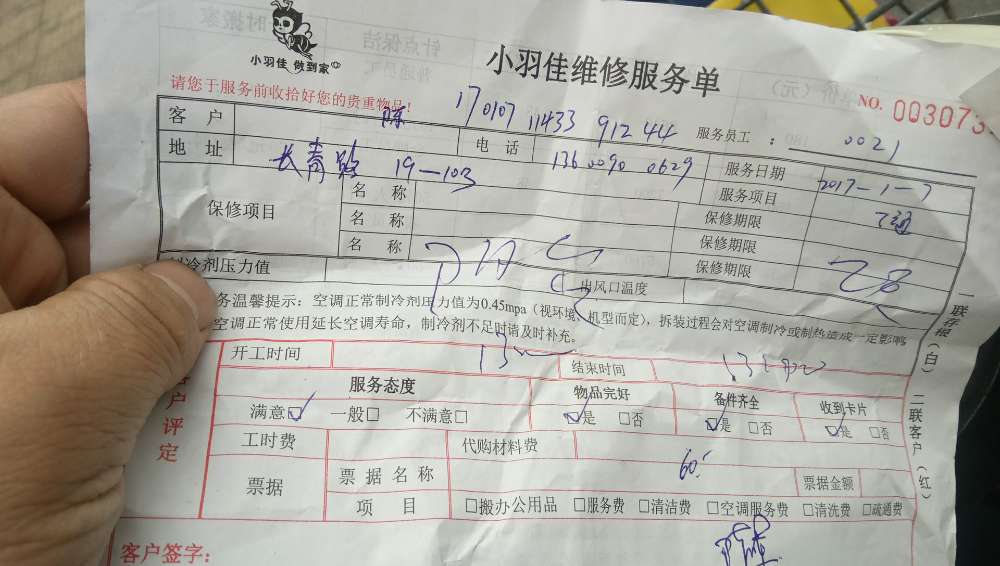 小羽佳 做到家
小羽佳维修服务单
请您于服务前收拾好您的贵重物品!
NO. 003073
客 户 陈 170107 11433 912 44 服务员工 : 0021
地 址 长青路 19-103 电 话 136 0090 0629 服务日期 2017-1-7
保修项目 名 称 服务项目
名 称 保修期限
名 称 保修期限
保修期限
制冷剂压力值 出风口温度
务温馨提示：空调正常制冷剂压力值为0.45mpa（视环境、机型而定），拆装过程会对空调制冷或制热造成一定影响
空调正常使用延长空调寿命，制冷剂不足时请及时补充。
开工时间 结束时间
客户评定
服务态度 物品完好 备件齐全 收到卡片
满意☑ 一般□ 不满意□ ☑是 □否 ☑是 □否 ☑是 □否
工时费 代购材料费 60
票据 票 据 名 称 票据金额
项 目 □搬办公用品 □服务费 □清洁费 □空调服务费 □清洗费 □疏通费
客户签字:
一联存根（白） 二联客户（红）